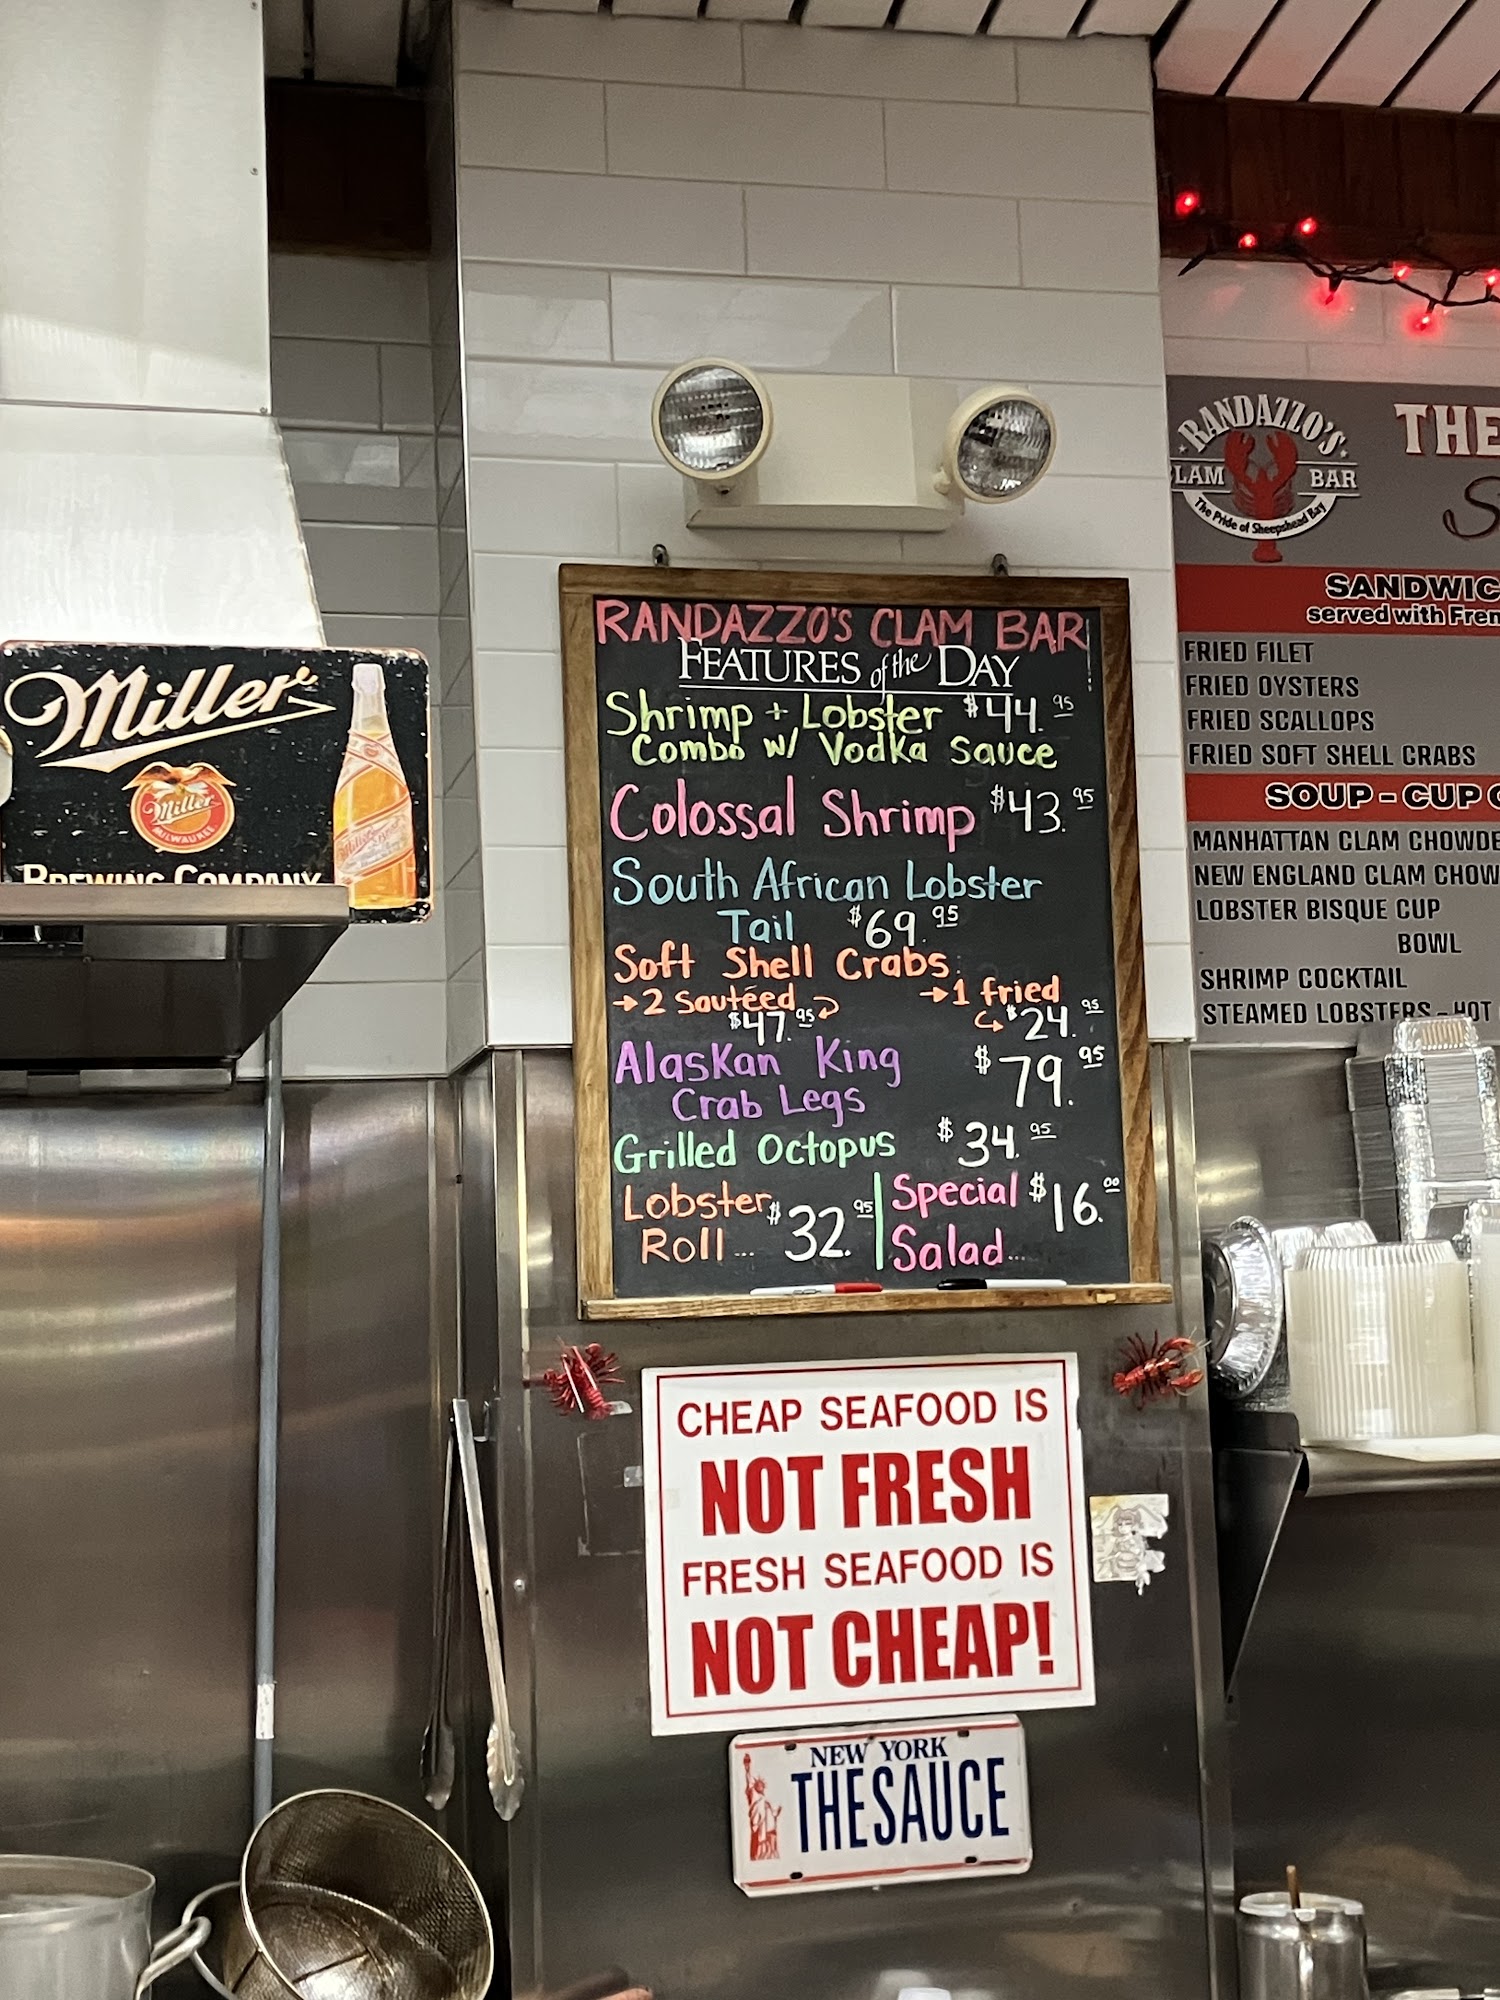 Miller
Miller
MILWAUKEE
BREWING COMPANY
RANDAZZO'S CLAM BAR!
FEATURES of the DAY
Shrimp + Lobster $44.95
Combo w/ Vodka Sauce
Colossal Shrimp $43.95
South African Lobster
Tail $69.95
Soft Shell Crabs
→2 Sautéed →1 fried
$47.95 $24.95
Alaskan King $79.95
Crab Legs
Grilled Octopus $34.95
Lobster $32.95
Roll...
Special $16.00
Salad...
CHEAP SEAFOOD IS
NOT FRESH
FRESH SEAFOOD IS
NOT CHEAP!
NEW YORK
THESAUCE
RANDAZZO'S
CLAM BAR
The Pride of Sheepshead Bay
THE
SANDWIC
served with Fren
FRIED FILET
FRIED OYSTERS
FRIED SCALLOPS
FRIED SOFT SHELL CRABS
SOUP - CUP
MANHATTAN CLAM CHOWDE
NEW ENGLAND CLAM CHOW
LOBSTER BISQUE CUP
BOWL
SHRIMP COCKTAIL
STEAMED LOBSTERS - HOT